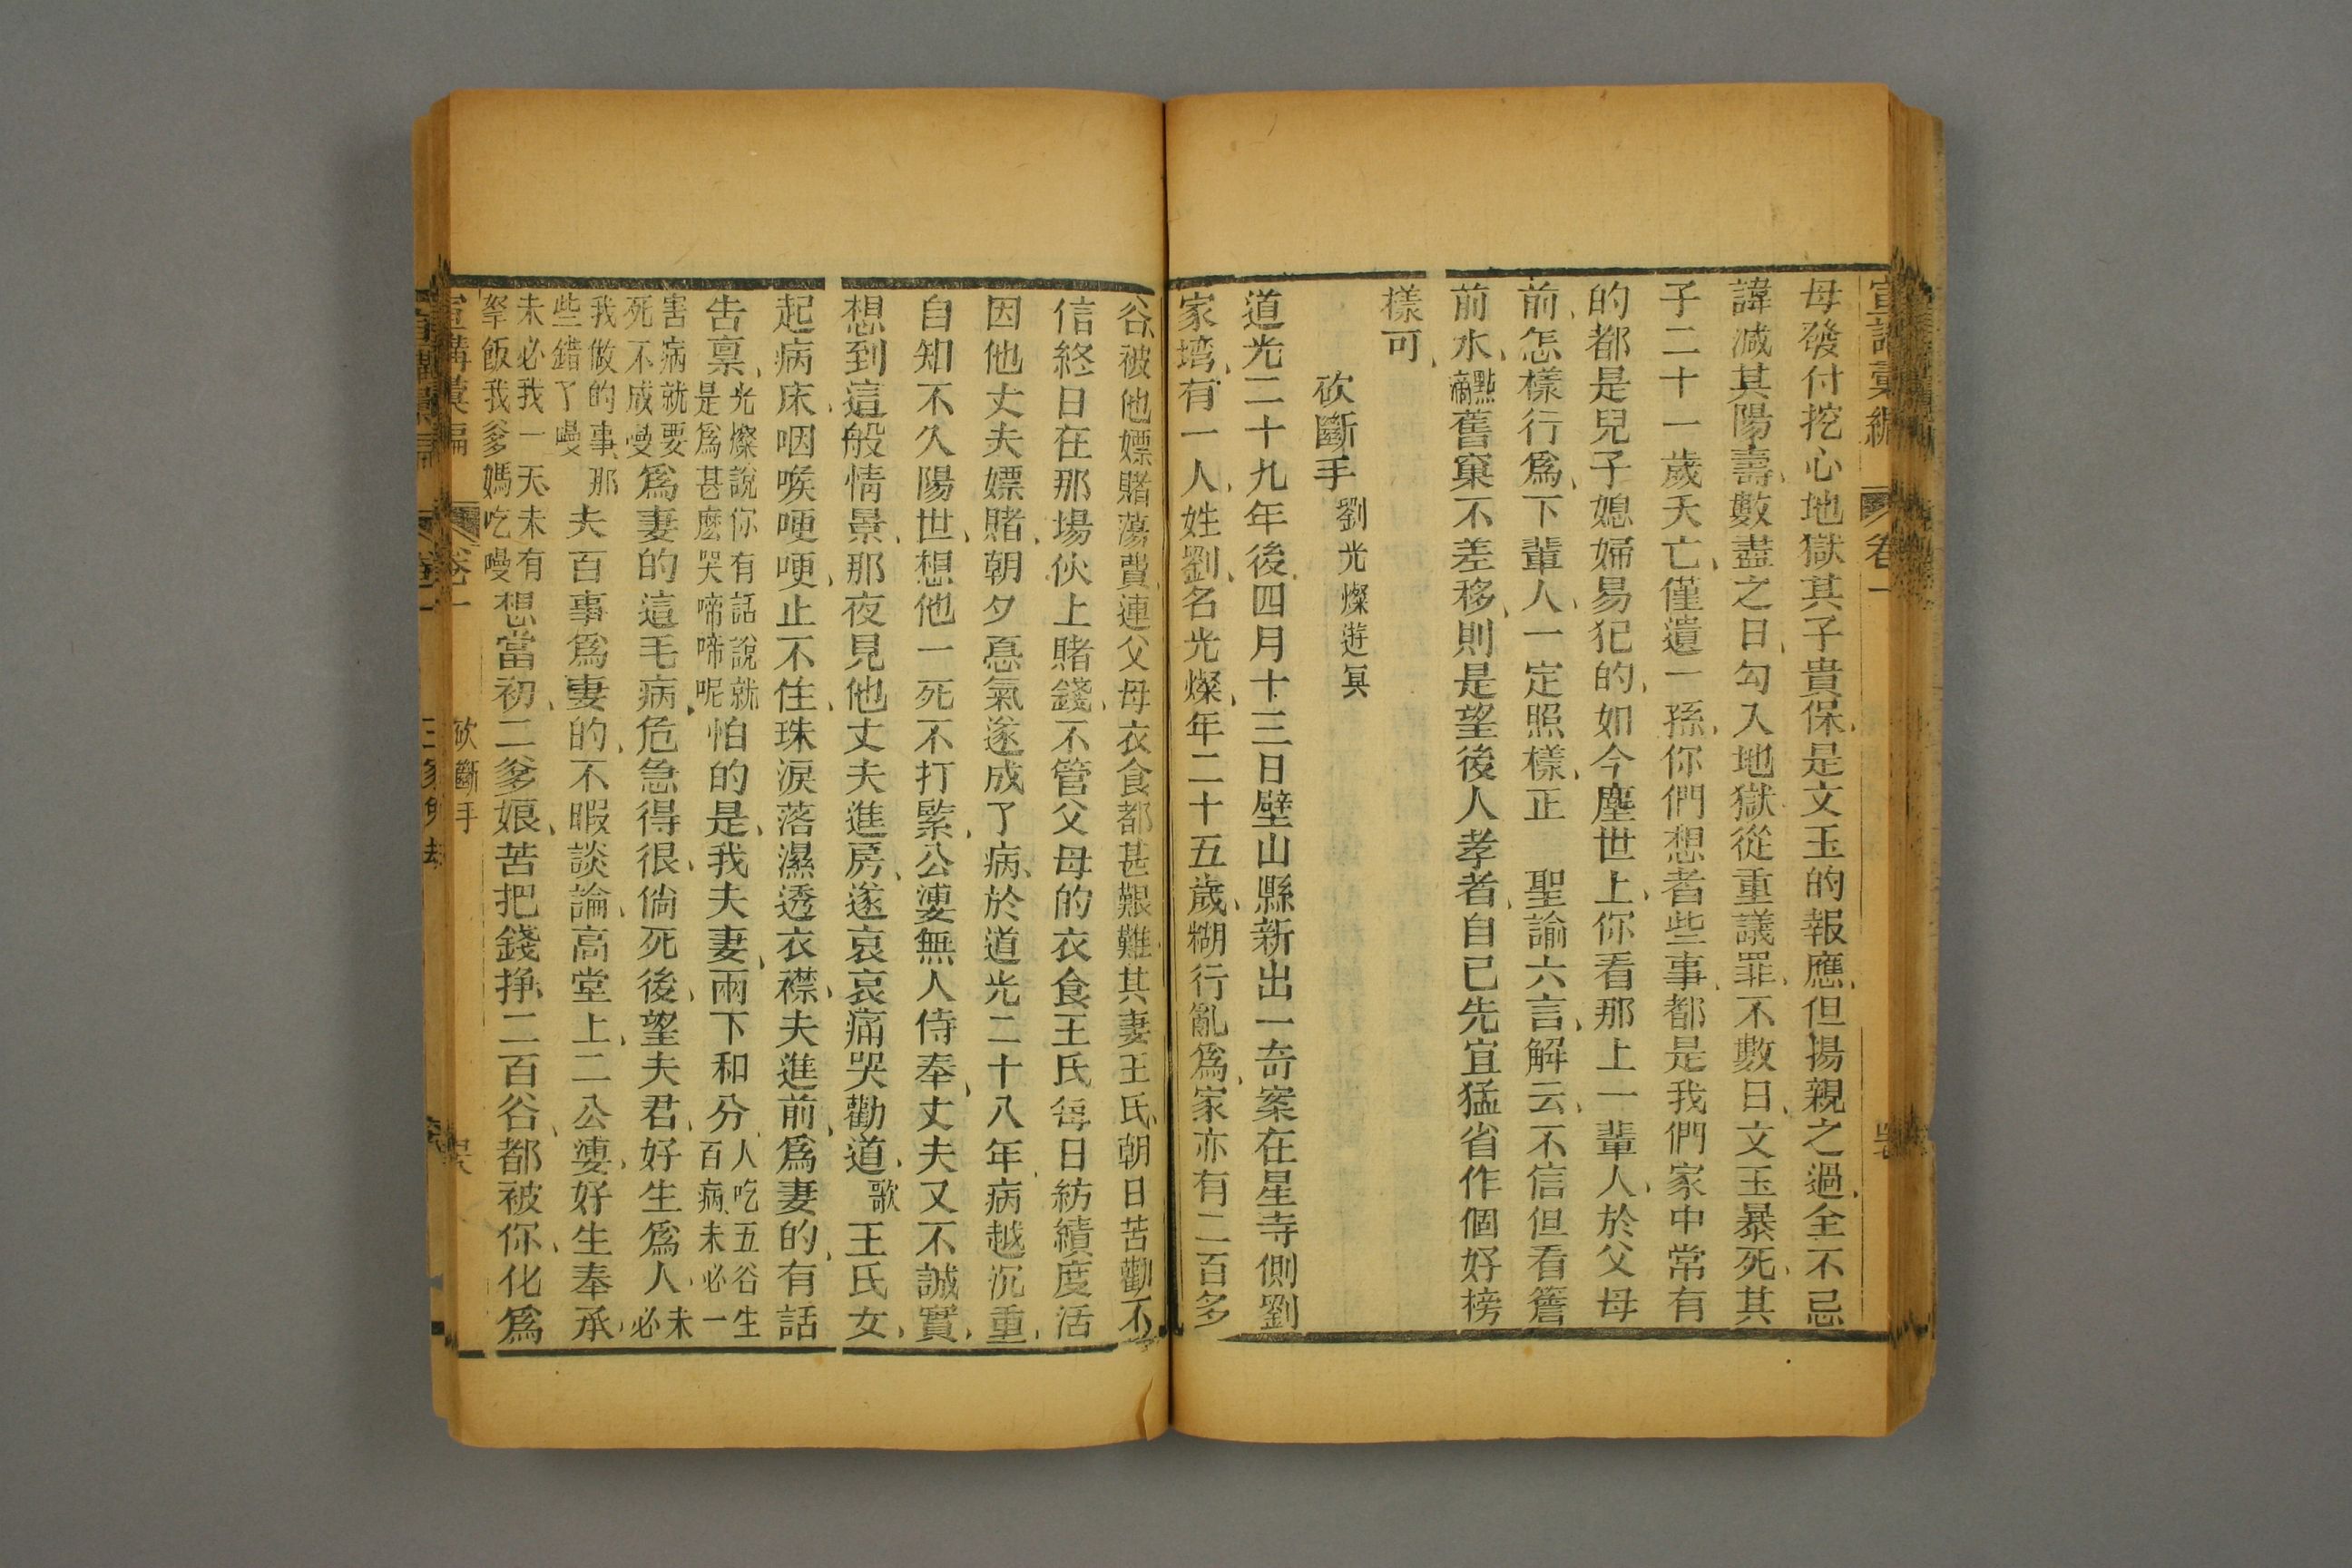 宣講彙編 卷一
母發付挖心地獄其子貴保是文玉的報應但揚親之過全不忌
諱減其陽壽數盡之日勾入地獄從重議罪不數日文玉暴死其
子二十一歲夭亡僅遺一孫你們想者些事都是我們家中常有
的都是兒子媳婦易犯的如今塵世上你看那上一輩人於父母
前怎樣行為下輩人一定照樣正 聖諭六言解云不信但看簷
前水點滴舊窠不差移則是望後人孝者自己先宜猛省作個好榜
樣可
砍斷手 劉光燦遊冥
道光二十九年後四月十三日壁山縣新出一奇案在星寺側劉
家塆有一人姓劉名光燦年二十五歲糊行亂為家亦有二百多
谷被他嫖賭蕩費連父母衣食都甚艱難其妻王氏朝日苦勸不
信終日在那場伙上賭錢不管父母的衣食王氏每日紡績度活
因他丈夫嫖賭朝夕慪氣遂成了病於道光二十八年病越沉重
自知不久陽世想他一死不打緊公婆無人侍奉丈夫又不誠實
想到這般情景那夜見他丈夫進房遂哀哀痛哭勸道歌王氏女
起病床咽喉哽哽止不住珠淚落濕透衣襟夫進前為妻的有話
告稟光燦說你有話說就是為甚麼哭啼啼呢怕的是我夫妻兩下和分人吃五谷生百病未必一
害病就要死不成嗄為妻的這毛病危急得很倘死後望夫君好生為人未必
我做的事那些錯了嗄夫百事為妻的不暇談論高堂上二公婆好生奉承
未必我一天未有孥飯我爹媽吃嗄想當初二爹娘苦把錢掙二百谷都被你化為
宣講彙編 卷一 砍斷手